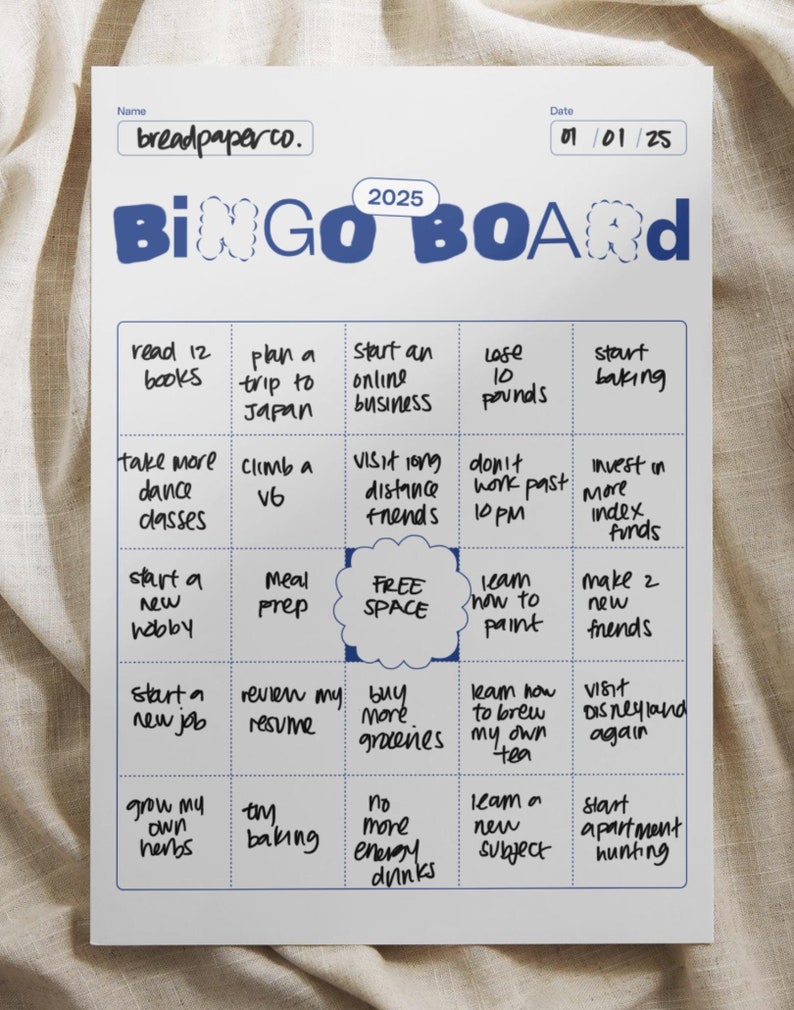 Name
Date
breadpaperco.
01 / 01 / 25
2025
BiNGO BOARd
read 12
books
plan a
trip to
Japan
start an
online
business
lose
10
pounds
start
baking
take more
dance
classes
climb a
V6
visit long
distance
friends
don't
work past
10 PM
invest in
more
index
funds
start a
new
hobby
Meal
prep
FREE
SPACE
learn
how to
paint
make 2
new
friends
start a
new job
review my
resume
buy
more
groceries
learn how
to brew
my own
tea
visit
Disneyland
again
grow my
own
herbs
try
baking
no
more
energy
drinks
learn a
new
subject
start
apartment
hunting